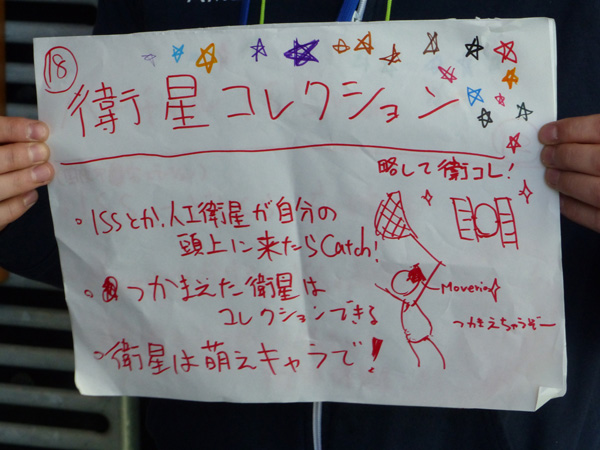 18
衛星コレクション
略して衛コレ!
・ISSとか、人工衛星が自分の
頭上に来たらCatch!
・つかまえた衛星は
コレクションできる
・衛星は萌えキャラで!
Moverio
つかまえちゃうぞー